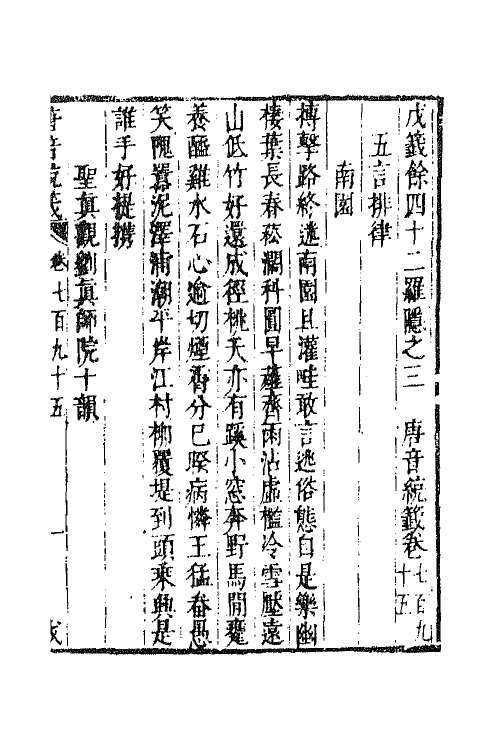 戊籤餘四十二羅隱之三　唐音統籤卷七百九十五
五言排律
南園
搏擊路終迷南園且灌畦敢言逃俗態自是樂幽
棲葉長春菘濶科圓早薤齊雨沾虛檻冷雪壓遠
山低竹好還成徑桃夭亦有蹊小窓奔野馬閒甕
養醯雞水石心逾切煙霄分已暌病憐王猛畚愚
笑隗囂泥澤滿潮平岸江村柳覆堤到頭乘興是
誰手好提携
聖真觀劉真師院十韻
唐音統籤 卷七百九十五 一 戊